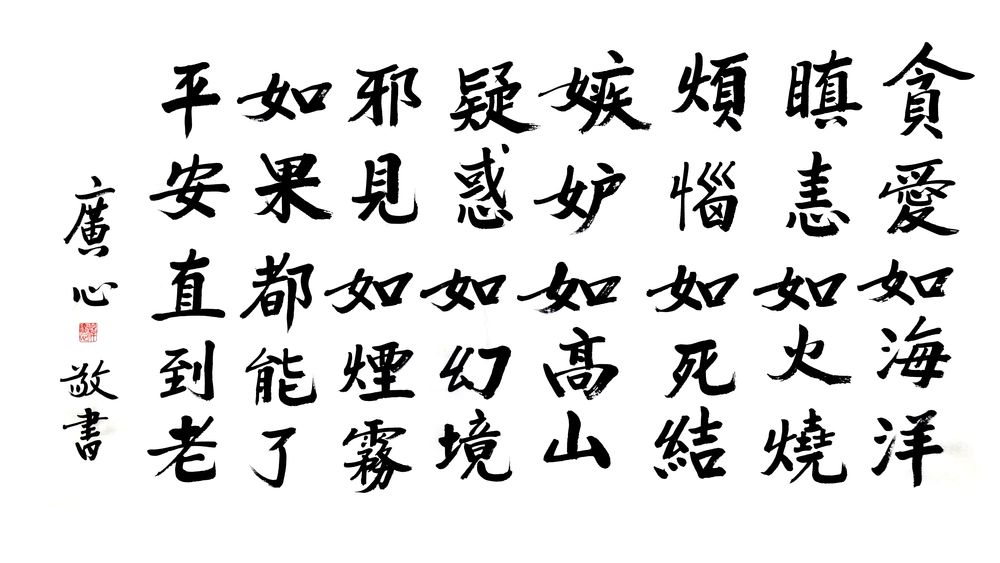 貪愛如海洋
瞋恚如火燒
煩惱如死結
嫉妒如高山
疑惑如幻境
邪見如煙霧
如果都能了
平安直到老
廣心 敬書